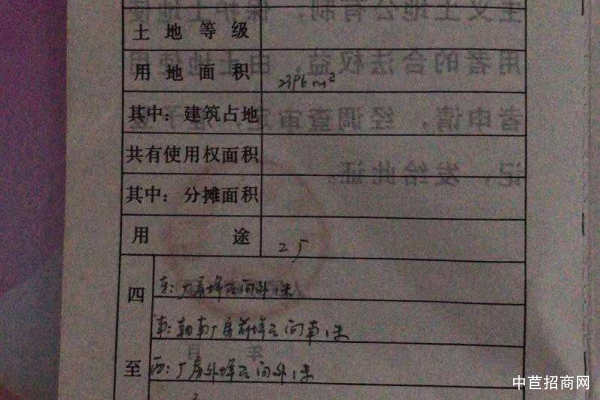 土地等级
用地面积 2396m²
其中：建筑占地
共有使用权面积
其中：分摊面积
用途 工厂
四至
东：厂房墙石向外1米
南：朝南厂房前墙石向南1米
西：厂房外墙石向外1米
主义土地公有制，保护土地使
用者的合法权益，由土地使用
者申请，经调查审定，准予登
记，发给此证。
年 月
中苣招商网